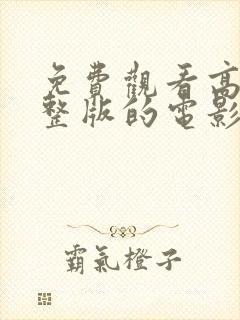 免費觀看高
整版的電影
霸氣橙子